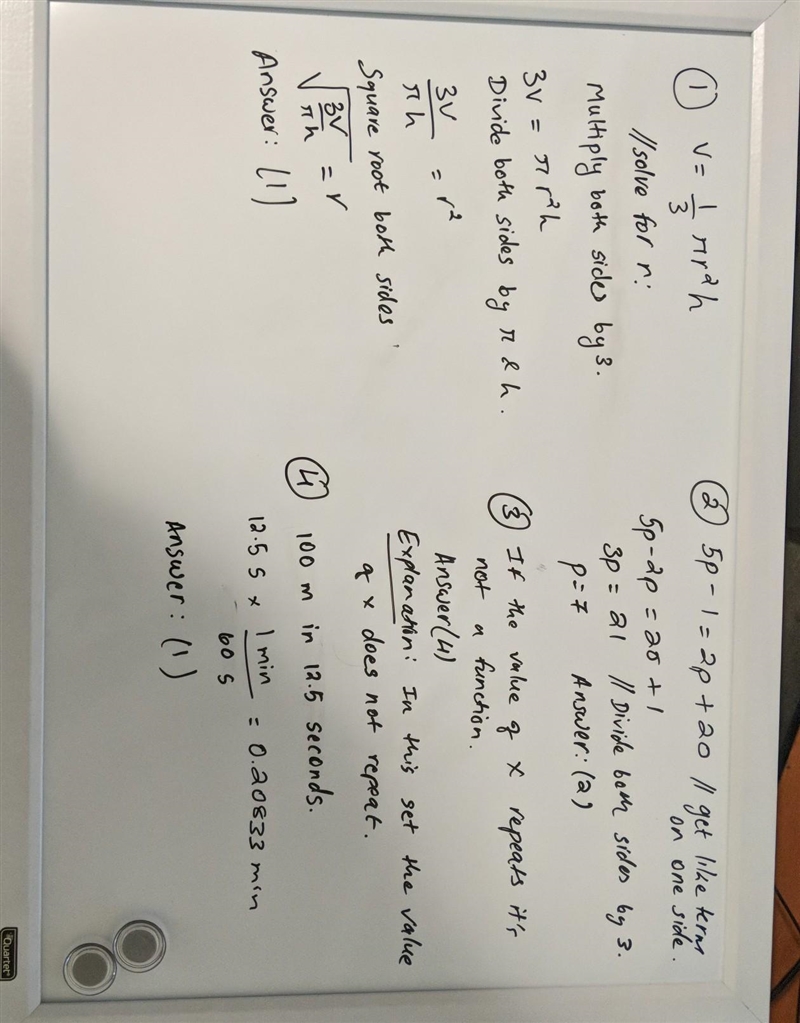 ① V = 1/3 πr²h
//solve for r:
Multiply both sides by 3.
3V = πr²h
Divide both sides by π & h.
3V/πh = r²
Square root both sides
√(3V/πh) = r
Answer: (1)
② 5p - 1 = 2p + 20 // get like term
on one side.
5p - 2p = 20 + 1
3p = 21 // Divide both sides by 3.
p = 7 Answer: (2)
③ If the value of x repeats it's
not a function.
Answer (4)
Explanation: In this set the value
of x does not repeat.
④ 100 m in 12.5 seconds.
12.5 s × 1 min/60 s = 0.20833 min
Answer: (1)
Quartet